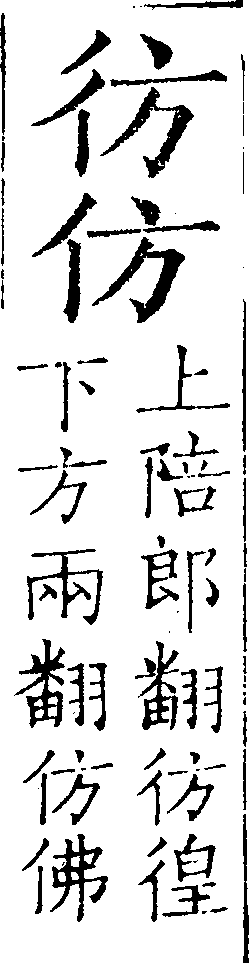 彷仿
上陪郎翻彷徨
下方兩翻仿佛